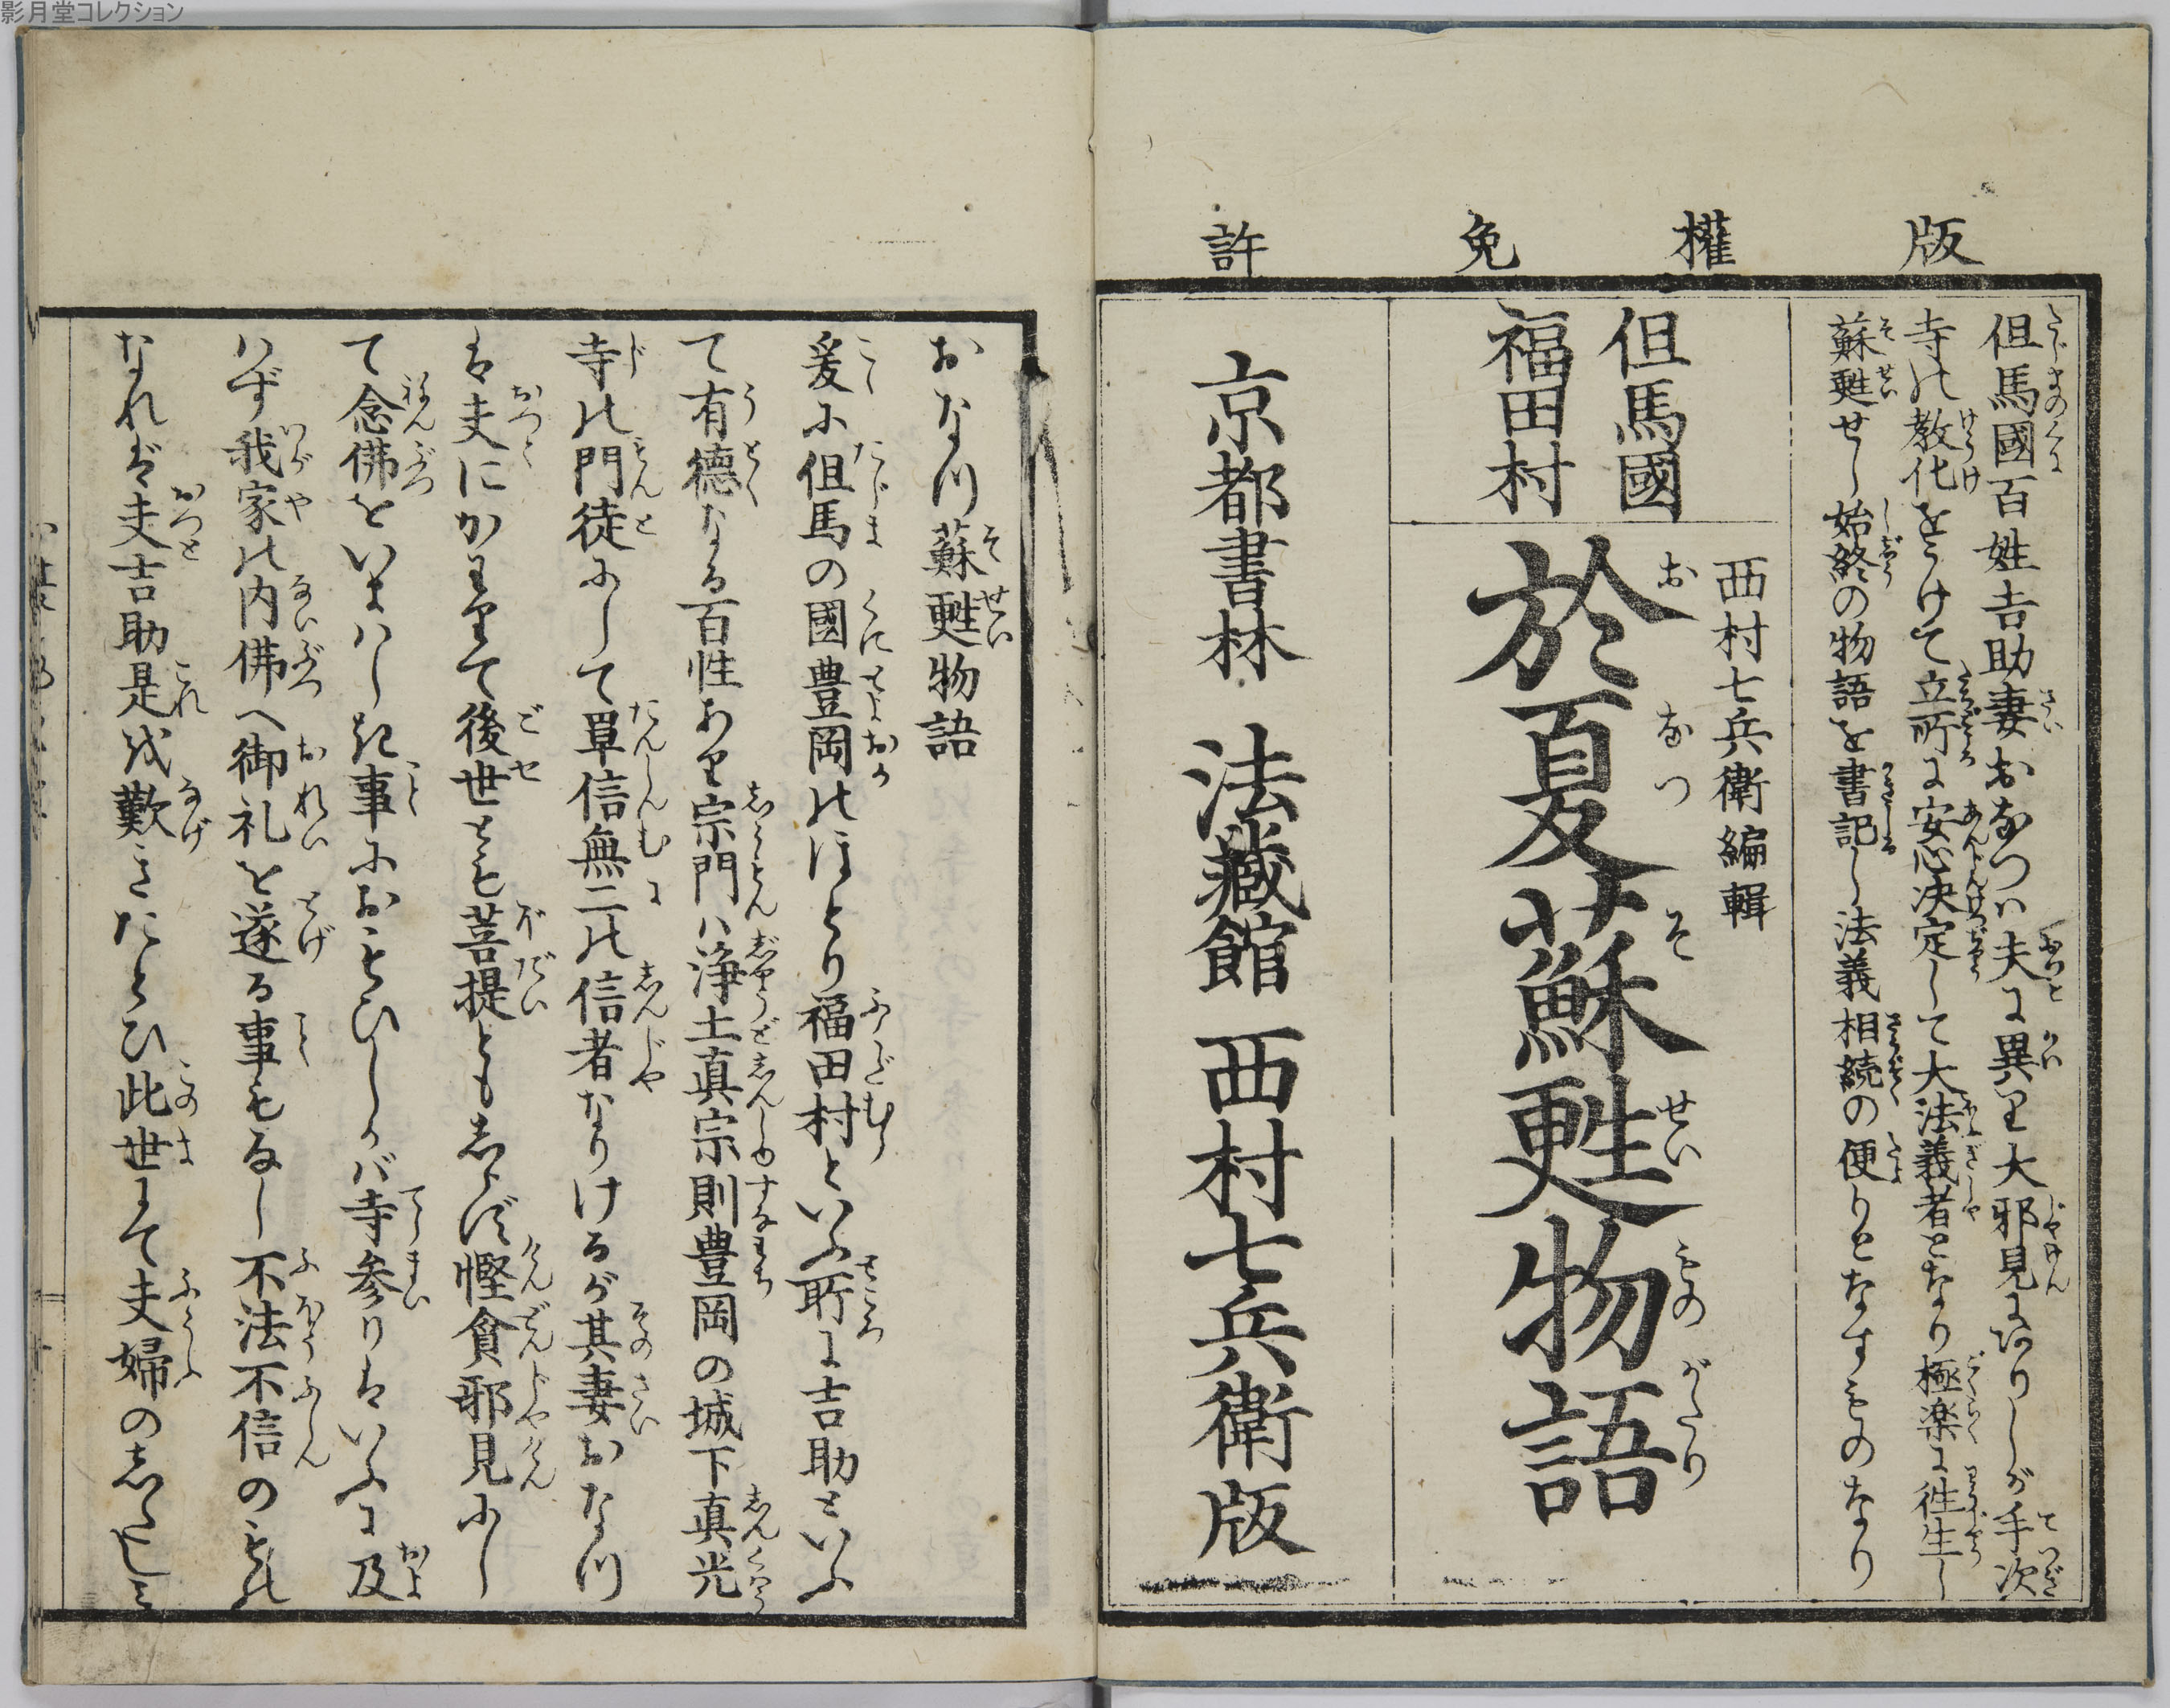 影月堂コレクション
版權免許
但馬國百姓吉助妻おなつハ夫に異り大邪見にありしが手次
寺の教化をうけて立所に安心决定して大法義者となり極楽に徃生し
蘇甦せし始終の物語を書記し法義相続の便りとなすものなり
西村七兵衛編輯
但馬國
福田村
於夏蘇甦物語
京都書林 法藏館 西村七兵衛版
おなつ蘇甦物語
爰に但馬の國豊岡のほとり福田村といふ所に吉助といふ
て有徳なる百性あり宗門ハ浄土真宗則豊岡の城下真光
寺の門徒にして単信無二の信者なりけるが其妻おなつ
は夫にかわりて後世とも菩提ともしらず慳貪邪見にし
て念佛をいまハしき事におもひしかバ寺参りはいふに及
ハず我家の内佛へ御礼を遂る事もなし不法不信のもの
なれば夫吉助是を歎きたとひ此世にて夫婦の